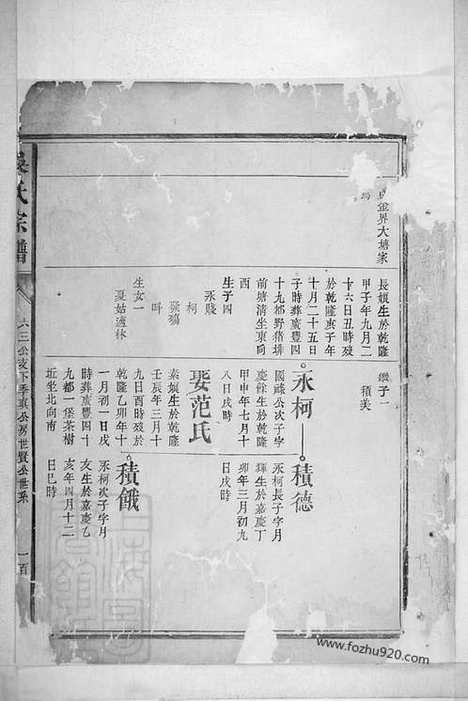 金界大塘家
長娘生於乾隆
甲子年九月二
十六日丑時歿
於乾隆庚子年
十月二十五日
子時葬廣豐四
十九都野猪垻
前塘清坐東向
酉
生子四
永賤
柯
生女一
適林
繼子一
積美
永柯
國 公次子字
慶餘生於乾隆
甲申年七月十
八日戌時
娶范氏
素娘生於乾隆
壬辰年三月十
九日酉時歿於
乾隆乙卯年十
一月初一日戌
時葬豐四十
九都一堡茶樹
坵坐北向南
積德
永柯長子字月
輝生於嘉慶丁
卯年三月初九
日戌時
積餓
永柯次子字月
亥生於嘉慶乙
亥年四月十二
日巳時
氏宗譜
六三公支下季真公房世賢公世系
一百
www.fozhu920.com